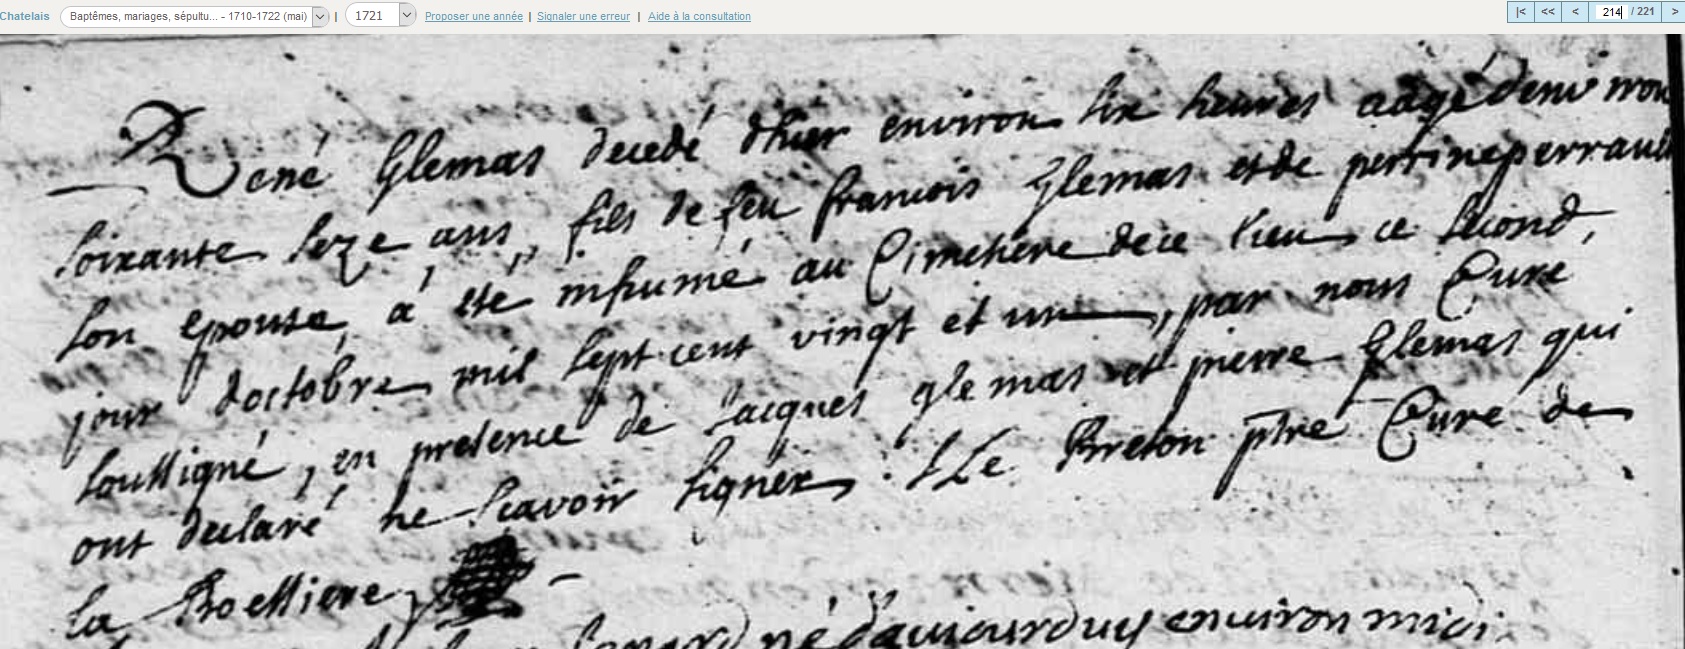 Chatelais Baptêmes, mariages, sépultu... - 1710-1722 (mai) | 1721 Proposer une année | Signaler une erreur | Aide à la consultation |< << < 214 / 221 >
René Glemas decedé d'hier environ six heures aagé denviron
soixante seze ans, fils de feu francois Glemas et de perrine perrault
son epouse, a été inhumé au Cimetiere de ce lieu ce second,
jour doctobre mil sept cent vingt et un, par nous Curé
soussigné, en presence de Jacques glemas et pierre glemas qui
ont declaré ne scavoir signer. Le Breton ptre Curé de
la Boessiere
né daujourduy environ midi